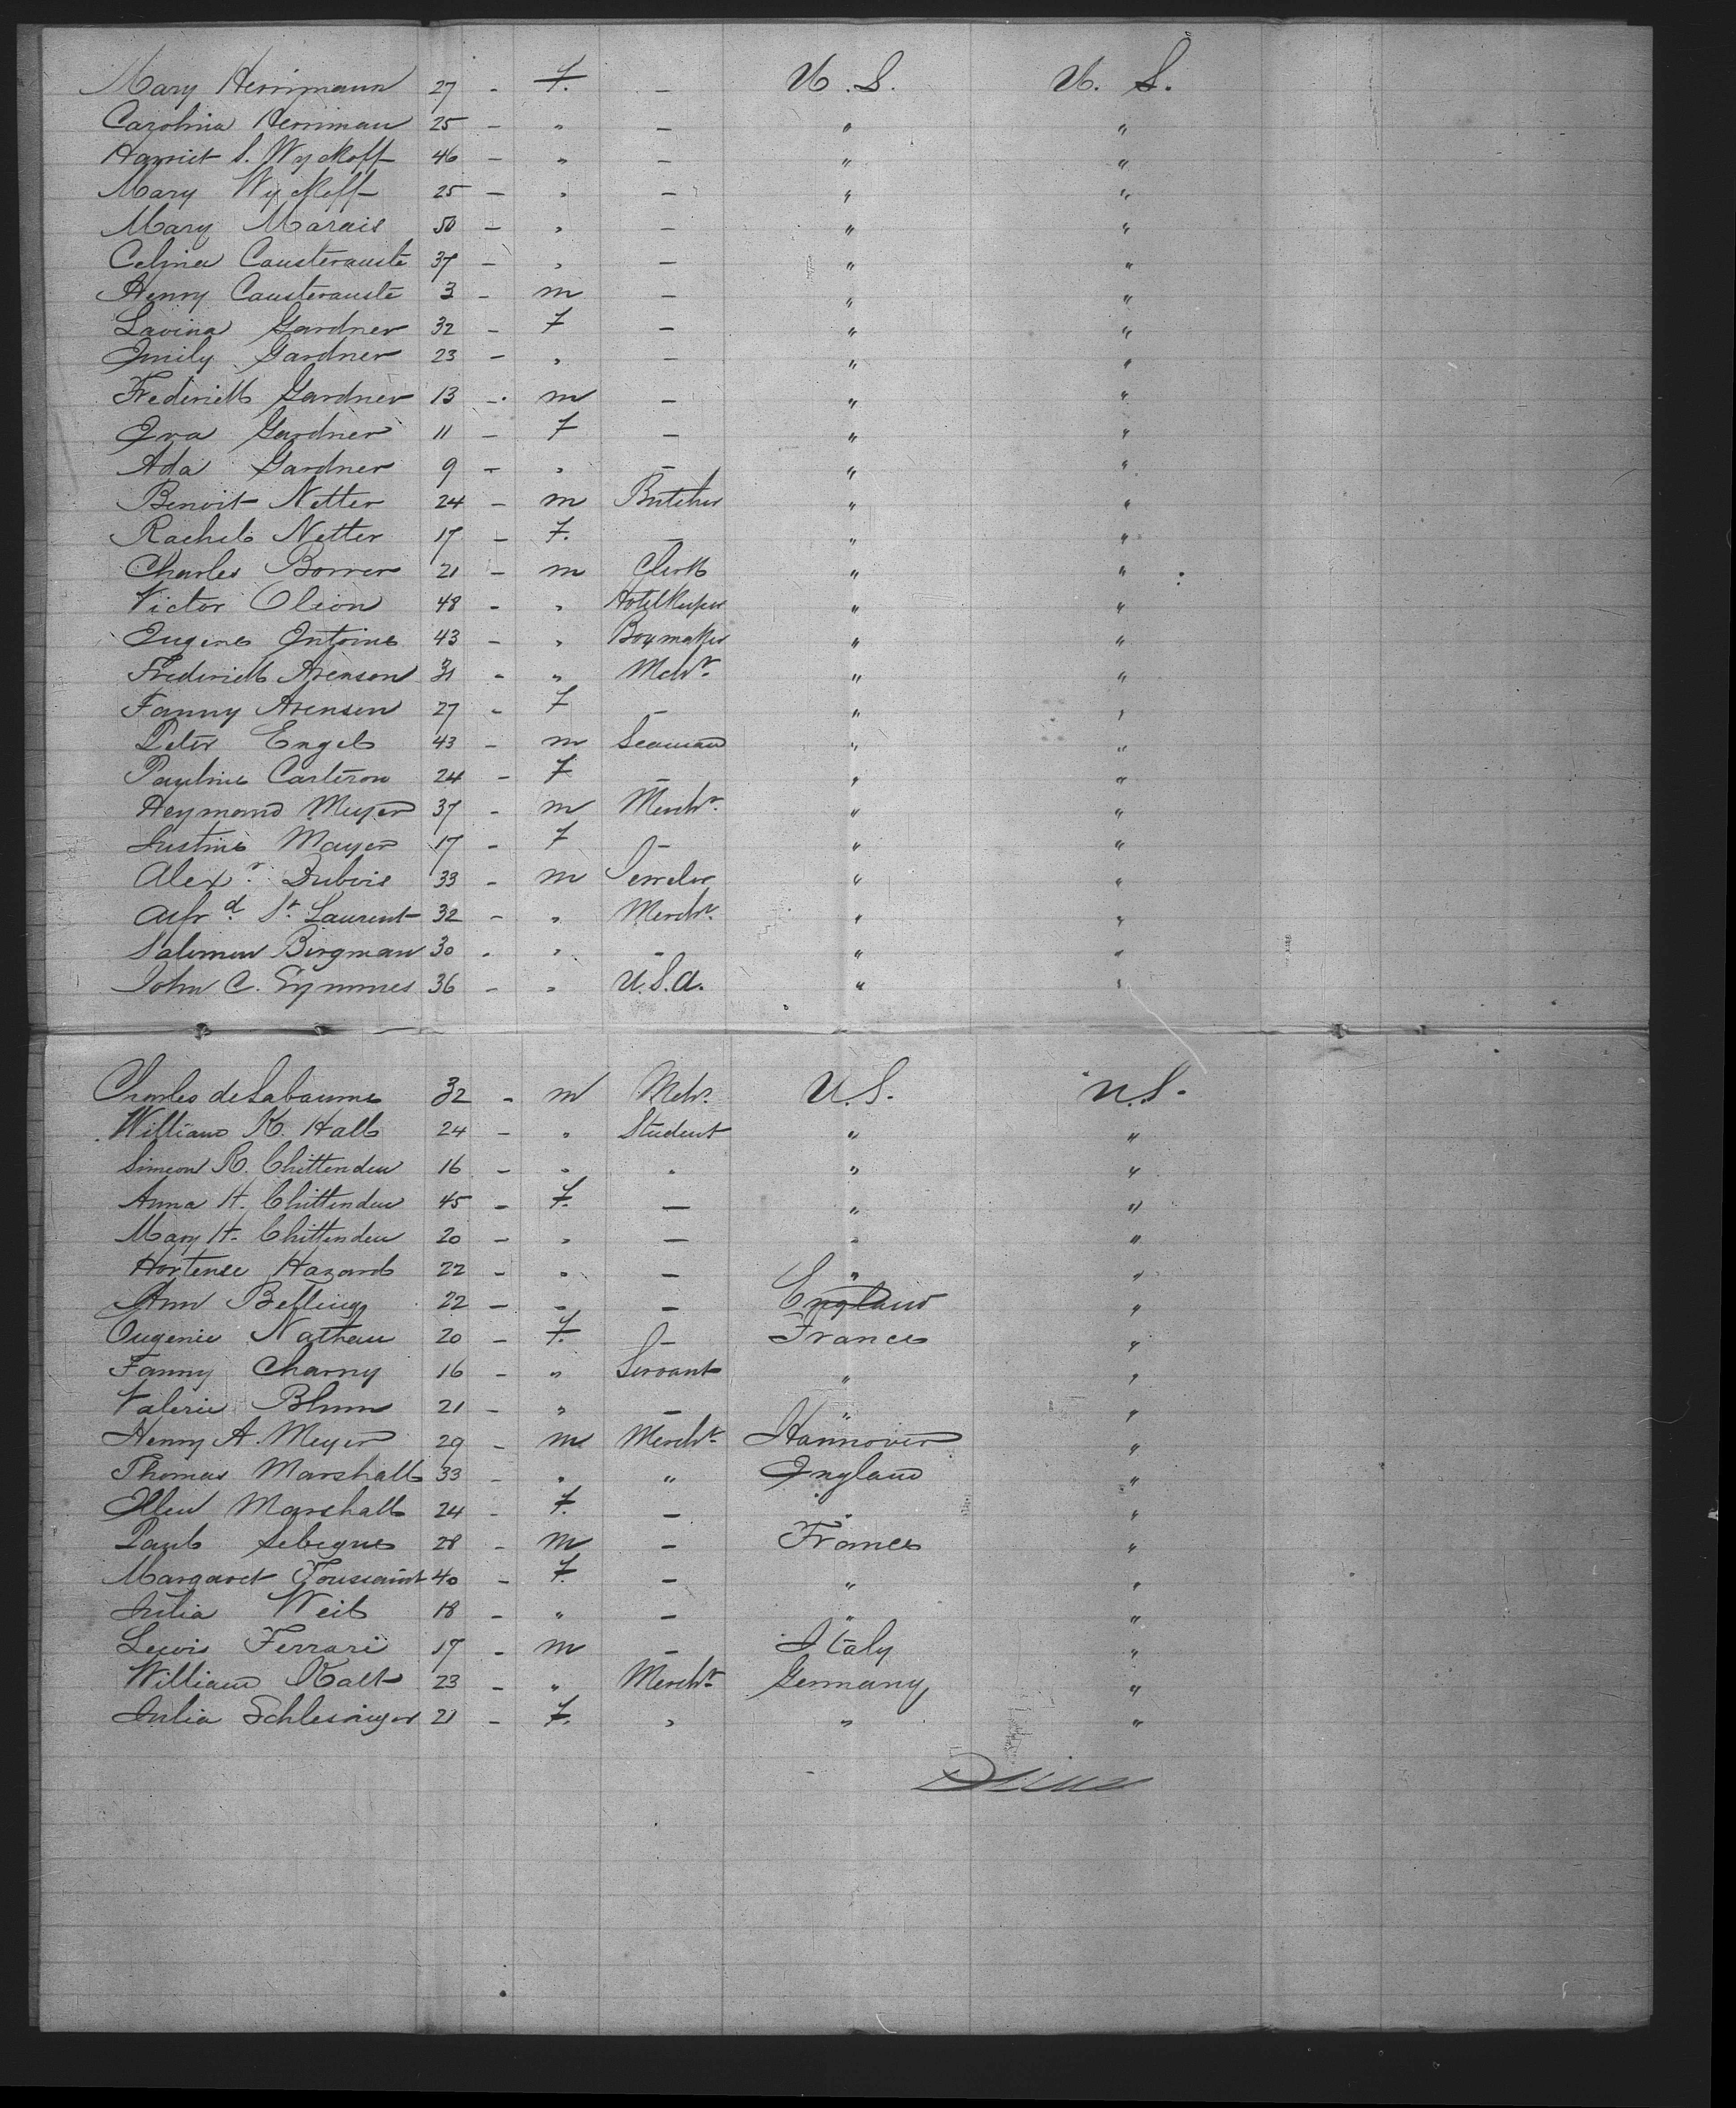 Mary Herrimann 27 - f. - U. S. U. S.
Carolina Herriman 25 - " - " "
Harriet S. Wyckoff 46 - " - " "
Mary Wyckoff 25 - " - " "
Mary Marais 50 - " - " "
Celina Causterauste 37 - " - " "
Henry Causterauste 3 - m - " "
Lavina Gardner 32 - f - " "
Emily Gardner 23 - " - " "
Frederick Gardner 13 - m - " "
Eva Gardner 11 - f - " "
Ada Gardner 9 - " - " "
Benoit Netter 24 - m Butcher " "
Rachel Netter 17 - f. - " "
Charles Borrer 21 - m Clerk " "
Victor Olion 48 - " Hotelkeeper " "
Eugene Entoine 43 - " Boxmaker " "
Frederick Arenson 31 - " Mcht. " "
Fanny Arenson 27 - f - " "
Peter Engel 43 - m Seaman " "
Pauline Carteron 24 - f - " "
Heymann Meyer 37 - m Mercht. " "
Justine Mayer 17 - f - " "
Alexr. Dubois 33 - m Jeweler " "
Alfrd. St. Laurent 32 - " Mercht. " "
Salomon Bergman 30 - " - " "
John C. Symmes 36 - " U.S.A. " "
Charles de Labaume 32 - m Mcht. U.S. U.S.
William K. Hall 24 - " Student " "
Simeon R. Chittenden 16 - " " " "
Anna H. Chittenden 45 - f. - " "
Mary H. Chittenden 20 - " - " "
Hortense Hazard 22 - " - " "
Ann Belling 22 - " - England "
Eugenie Nathan 20 - f. - France "
Fanny Charny 16 - " Servant " "
Valerie Blum 21 - " - " "
Henry A. Meyer 29 - m Mercht. Hannover "
Thomas Marshall 33 - " " England "
Ellen Marshall 24 - f. - " "
Paul Lebegue 28 - m - France "
Margaret Toussaint 40 - f. - " "
Julia Weil 18 - " - " "
Lewis Ferrari 17 - m - Italy "
William Kalt 23 - " Mercht. Germany "
Julia Schlesinger 21 - f. " " "